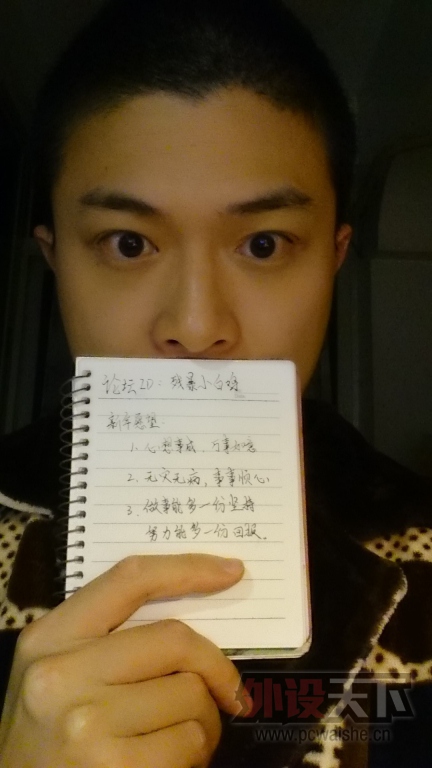 论坛ID：残暴小白鸡
新年愿望：
1. 心想事成，万事如意
2. 无灾无病，事事顺心
3. 做事能多一份坚持
努力能多一份回报。
外设天下
www.pcwaishe.cn